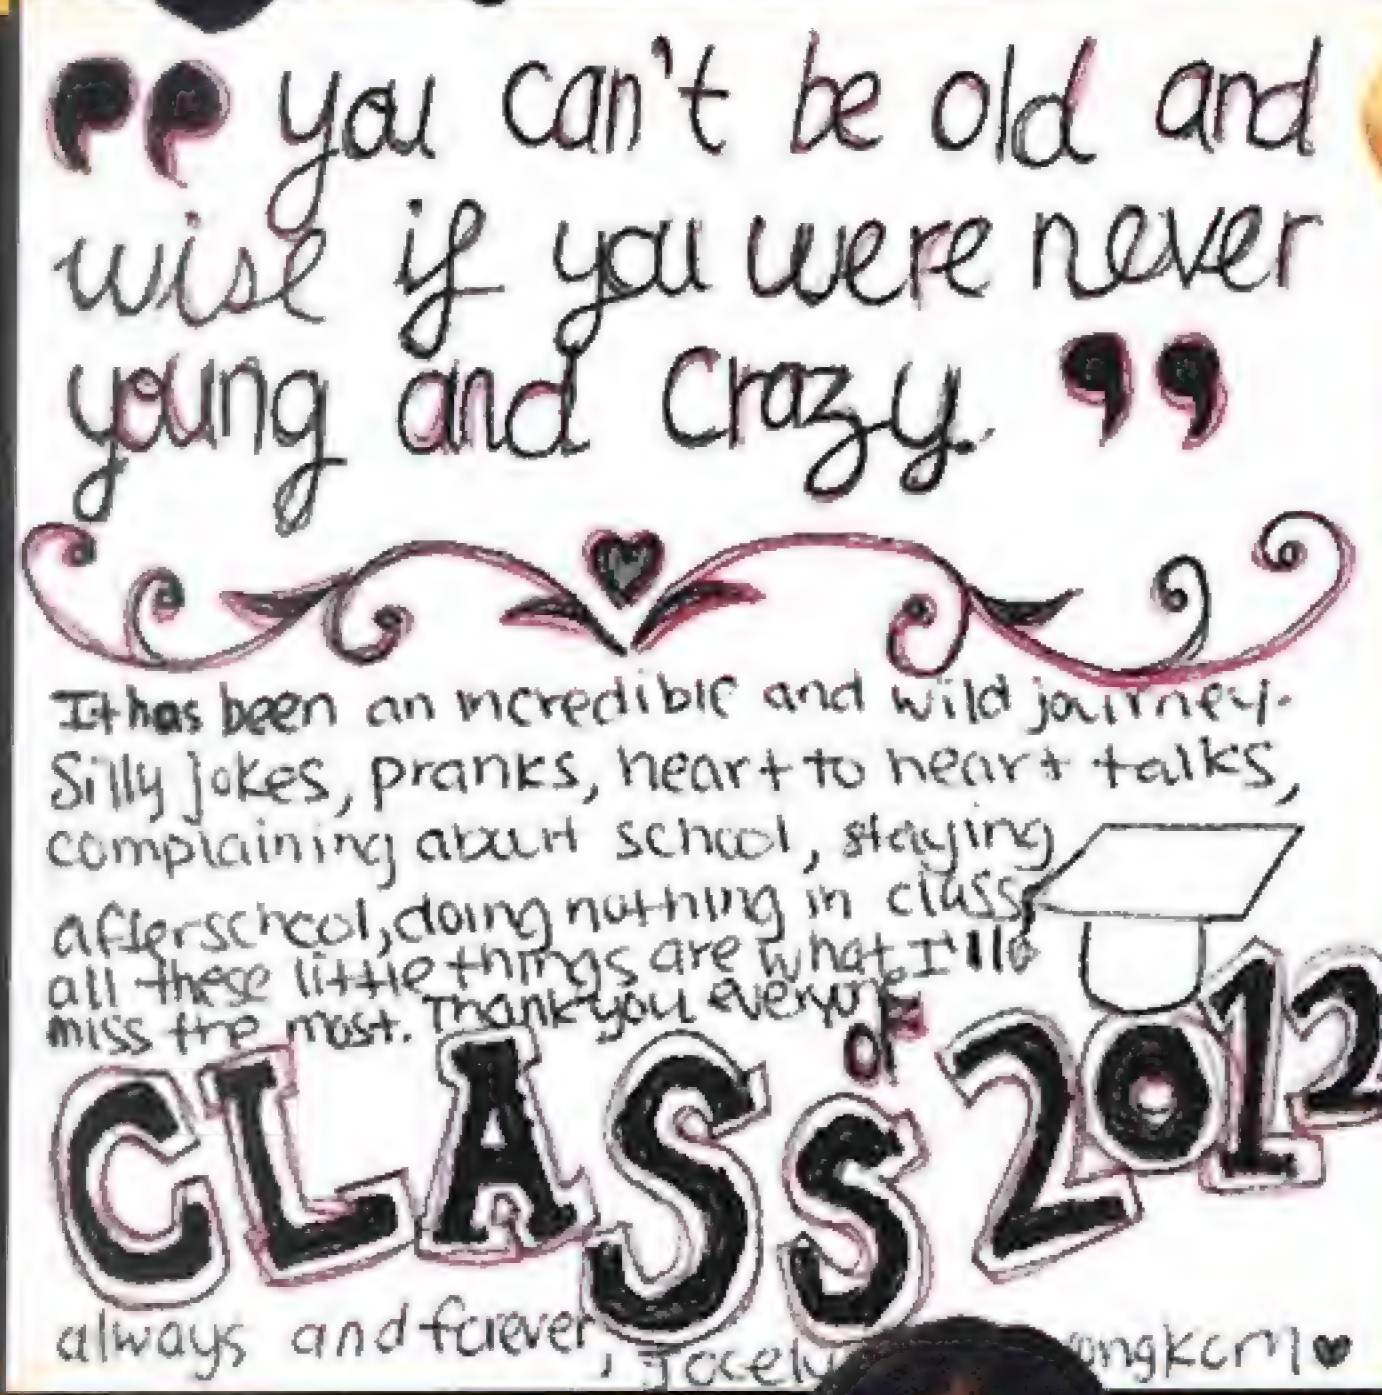 "you can't be old and
wise if you were never
young and crazy."
It has been an incredible and wild journey.
Silly jokes, pranks, heart to heart talks,
complaining about school, staying
afterschool, doing nothing in class,
all these little things are what I'll
miss the most. Thank you everyone
CLASS of 2012
always and forever,